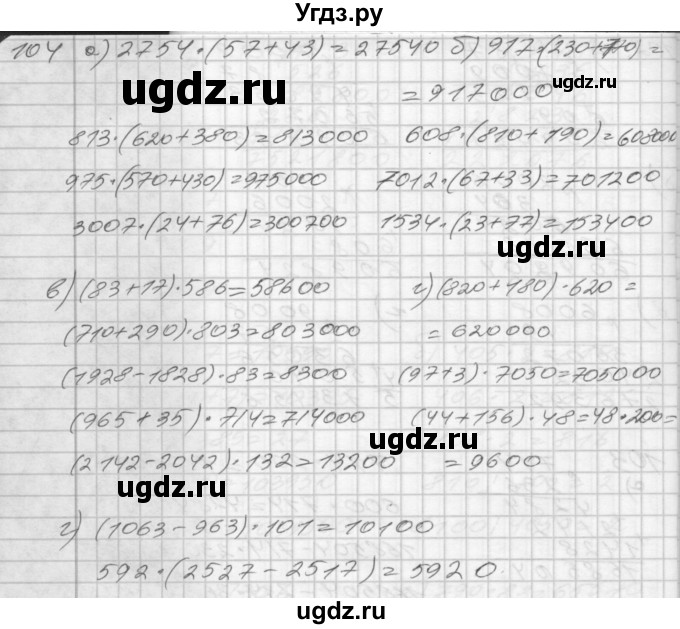 Угдз.ру
104 а) 2754·(57+43)=27540 б) 917·(230+770)=
=917000
ugdz.ru
ugdz.ru
813·(620+380)=813000 608·(810+190)=608000
975·(570+430)=975000 7012·(67+33)=701200
3007·(24+76)=300700 1534·(23+77)=153400
ugdz.ru
в) (83+17)·586=58600 г) (820+180)·620=
(710+290)·803=803000 =620000
(1928-1828)·83=8300 (97+3)·7050=705000
(965+35)·714=714000 (44+156)·48=48·200=
ugdz.ru
(2142-2042)·132=13200 =9600
ugdz.ru
г) (1063-963)·101=10100
592·(2527-2517)=5920
ugdz.ru